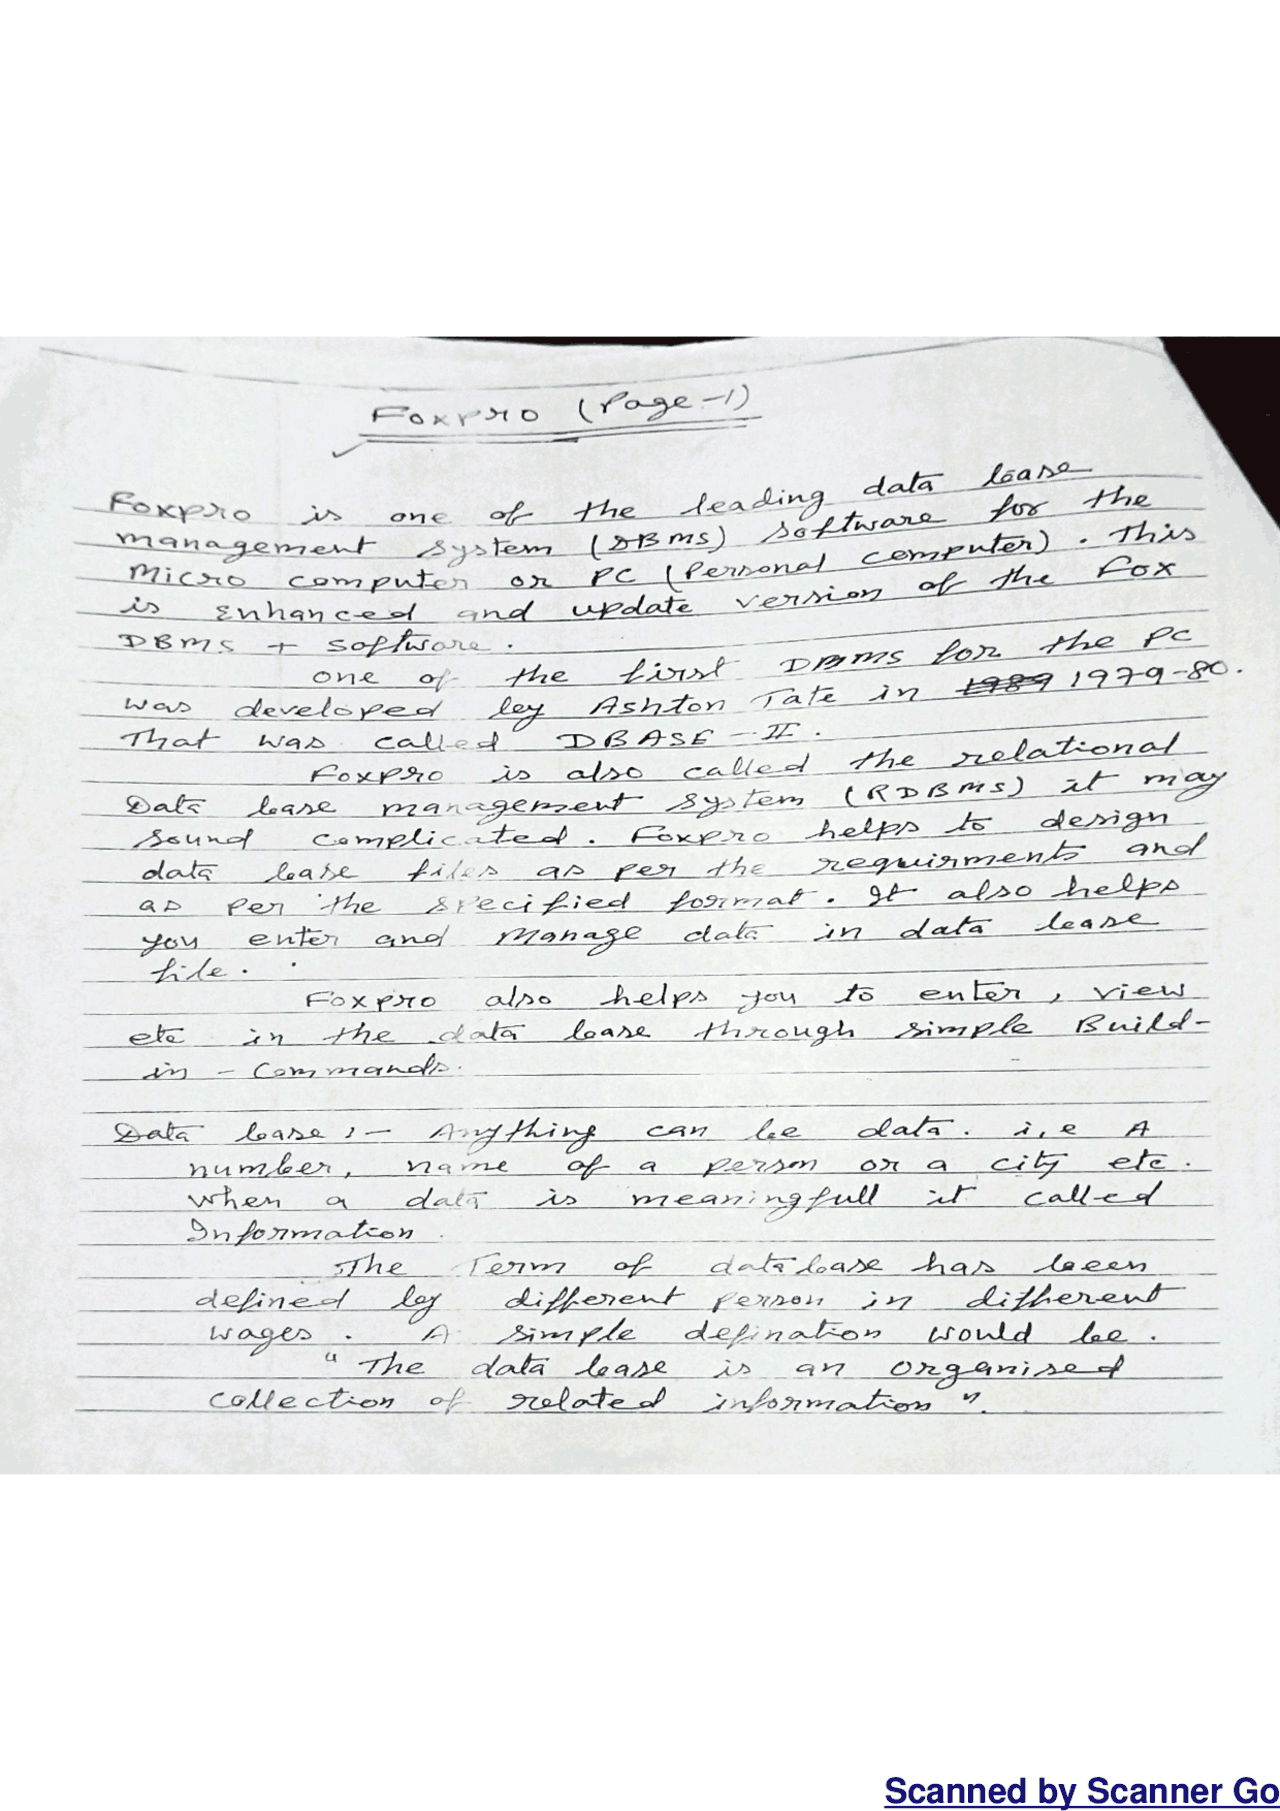 Foxpro (Page-1)
Foxpro is one of the leading data base
management System (DBMS) Software for the
Micro computer or PC (Personal computer). This
is Enhanced and update version of the Fox
DBMS + software.
one of the first DBMS for the PC
was developed by Ashton Tate in 1989 1979-80.
That was called DBASE-II.
Foxpro is also called the relational
Data base management System (RDBMS) it may
sound complicated. Foxpro helps to design
data base files as per the requirments and
as per the specified format. It also helps
you enter and manage data in data base
file.
Foxpro also helps you to enter, view
etc in the data base through simple Build-
in - Commands.
Data base :- Anything can be data. i,e A
number, name of a person or a city etc.
when a data is meaningfull it called
Information.
The Term of database has been
defined by different person in different
wages. A simple defination would be.
"The data base is an organised
collection of related information".
Scanned by Scanner Go